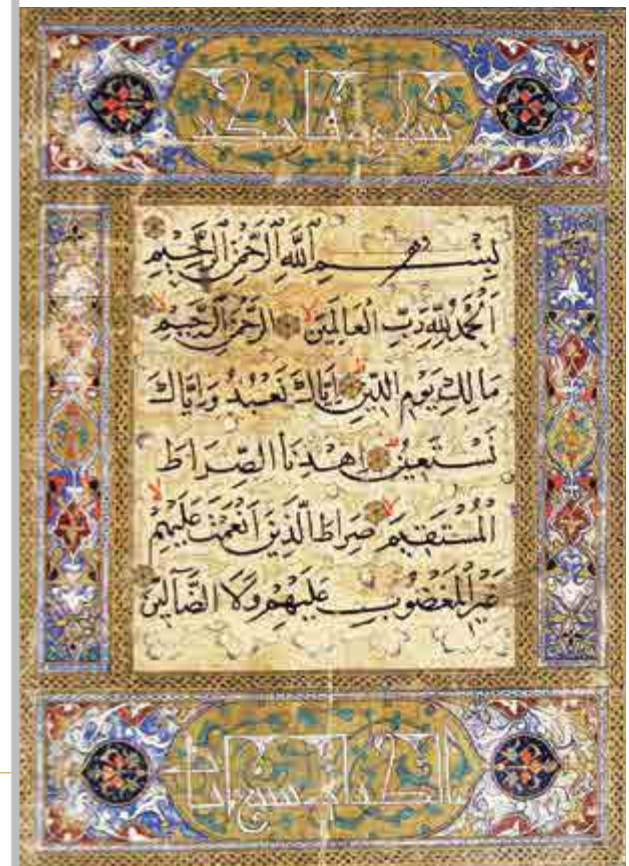 بِسْمِ ٱللَّهِ ٱلرَّحْمَٰنِ ٱلرَّحِيمِ
اَلْحَمْدُ لِلّٰهِ رَبِّ الْعَالَمِينَ لا الرَّحْمٰنِ الرَّحِيمِ لا
مَالِكِ يَوْمِ الدِّينِ ط اِيَّاكَ نَعْبُدُ وَاِيَّاكَ
نَسْتَعِينُ اِهْدِنَا الصِّرَاطَ
الْمُسْتَقِيمَ لا صِرَاطَ الَّذِينَ اَنْعَمْتَ عَلَيْهِمْ لا
غَيْرِ الْمَغْضُوبِ عَلَيْهِمْ وَلَا الضَّآلِّينَ